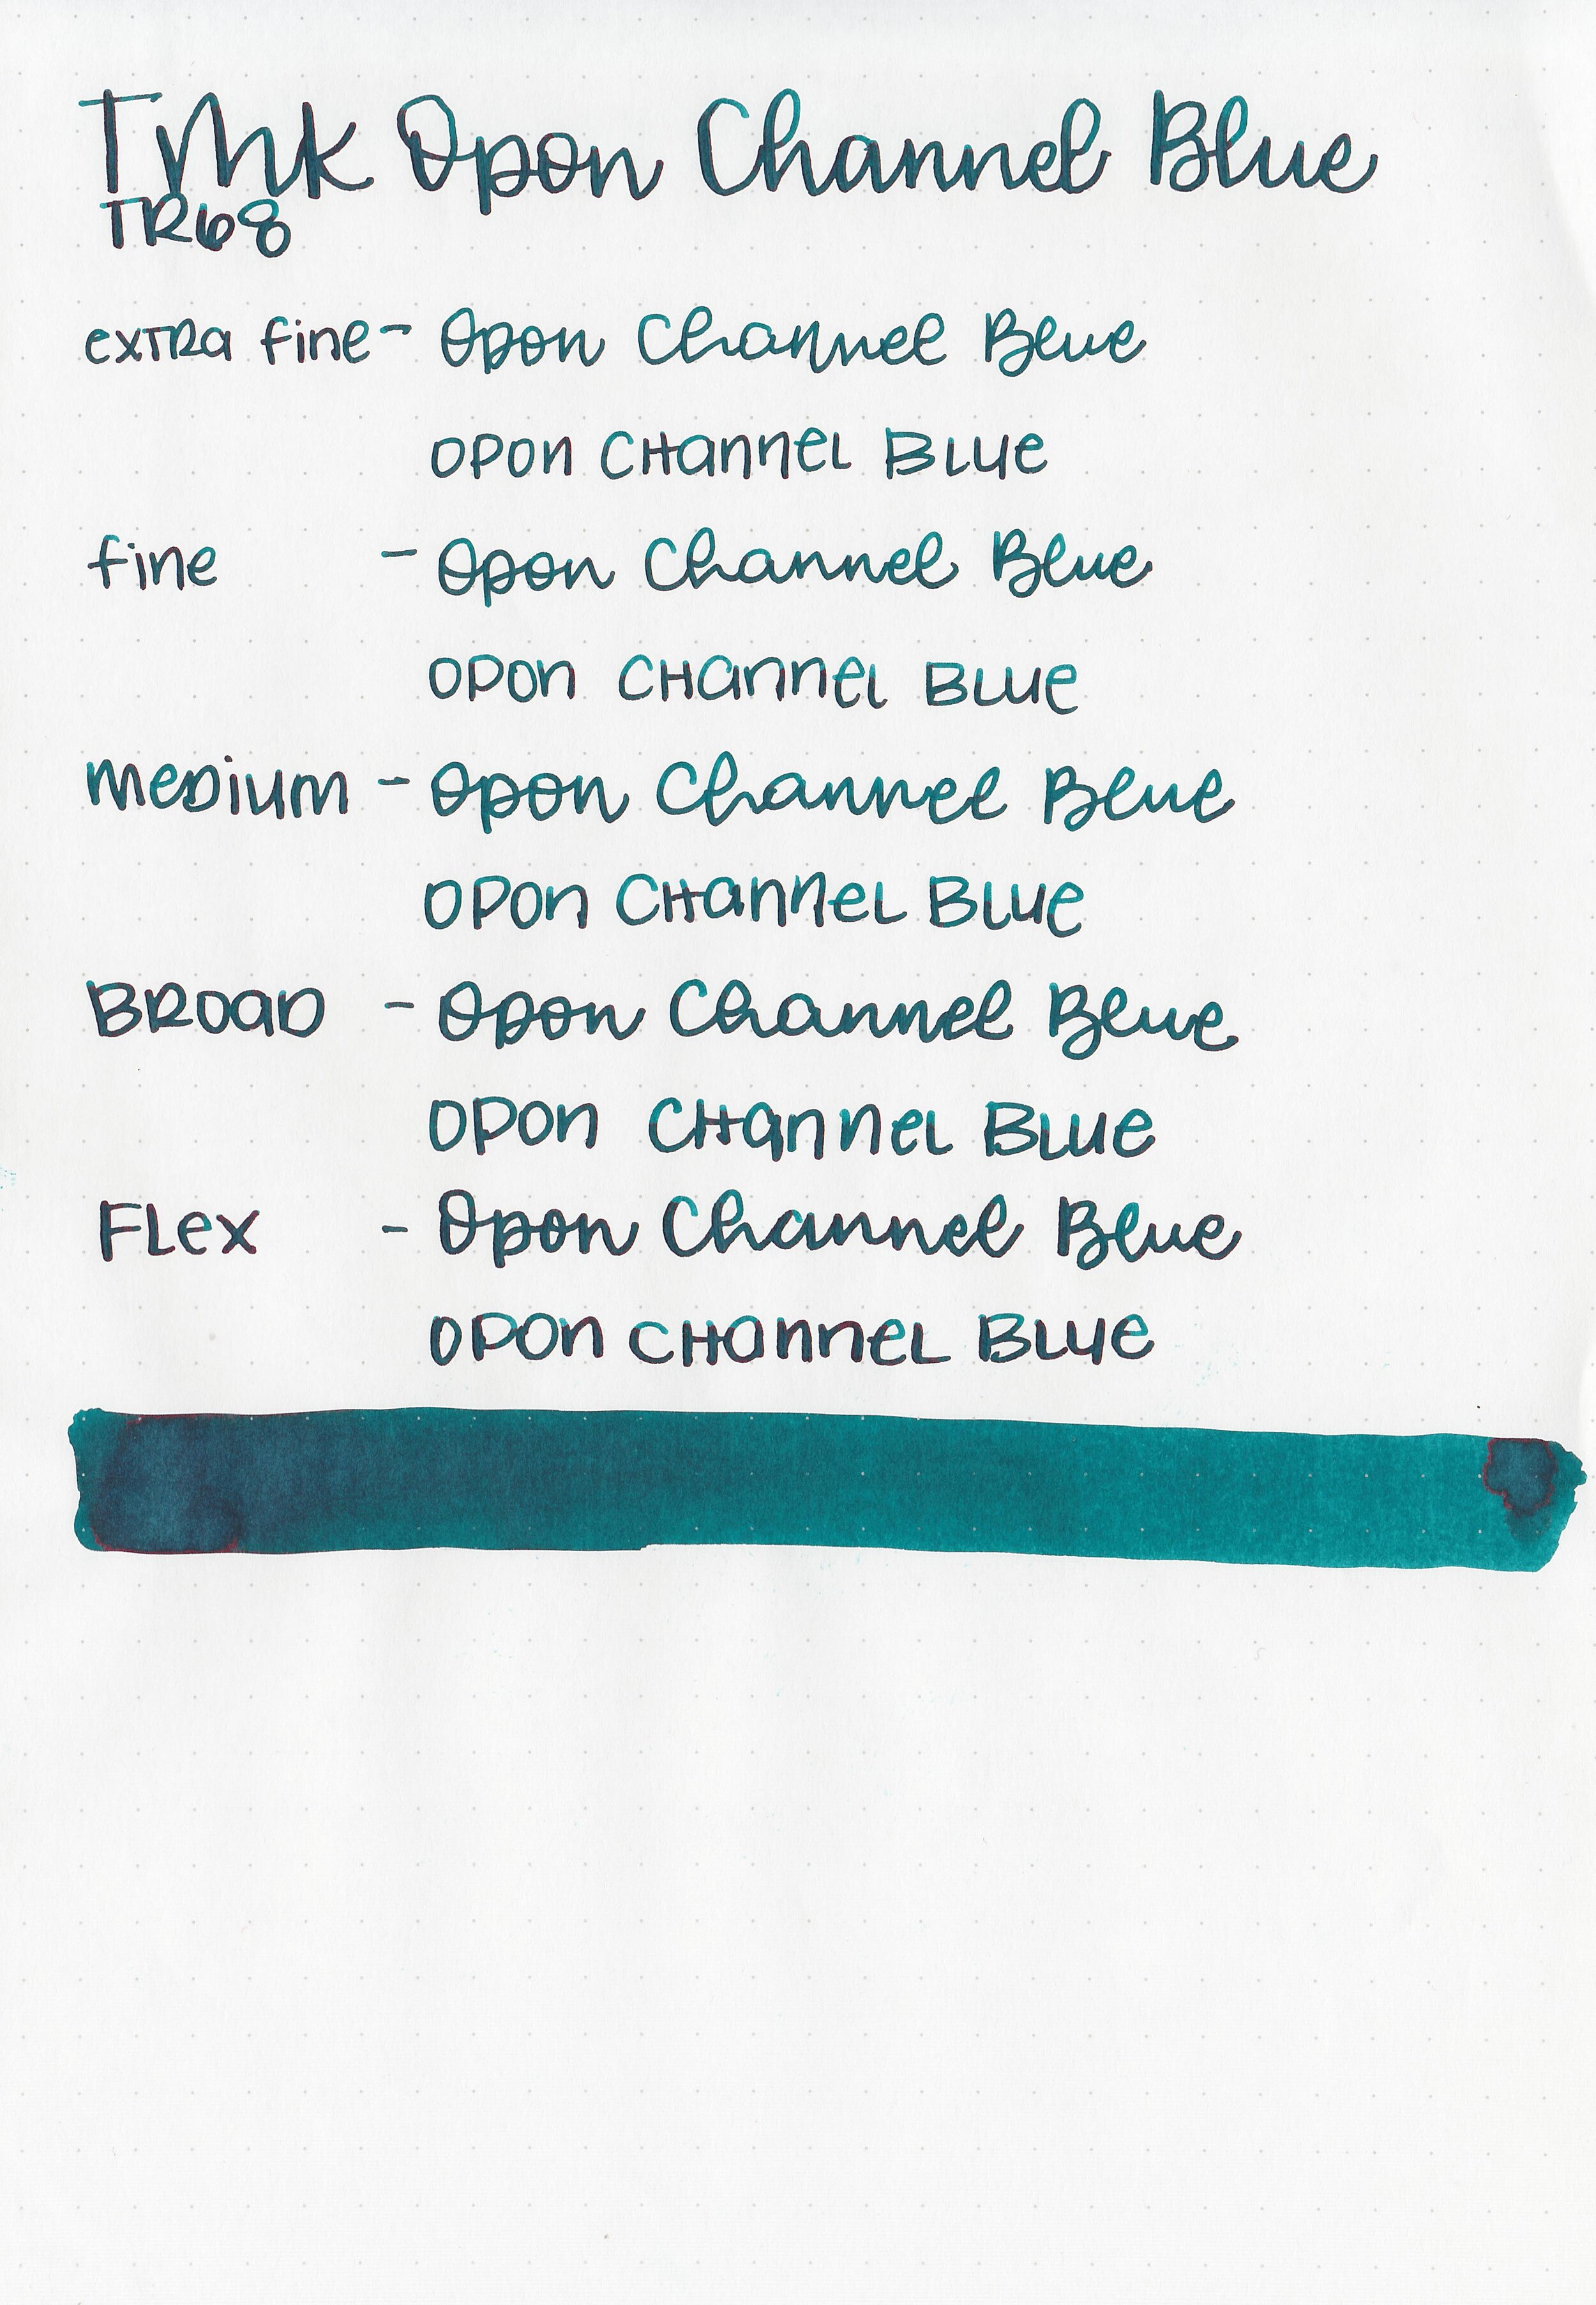 TMK Opon Channel Blue
TR68
extra fine - Opon Channel Blue
Opon Channel Blue
fine - Opon Channel Blue
Opon Channel Blue
Medium - Opon Channel Blue
Opon Channel Blue
Broad - Opon Channel Blue
Opon Channel Blue
Flex - Opon Channel Blue
Opon Channel Blue